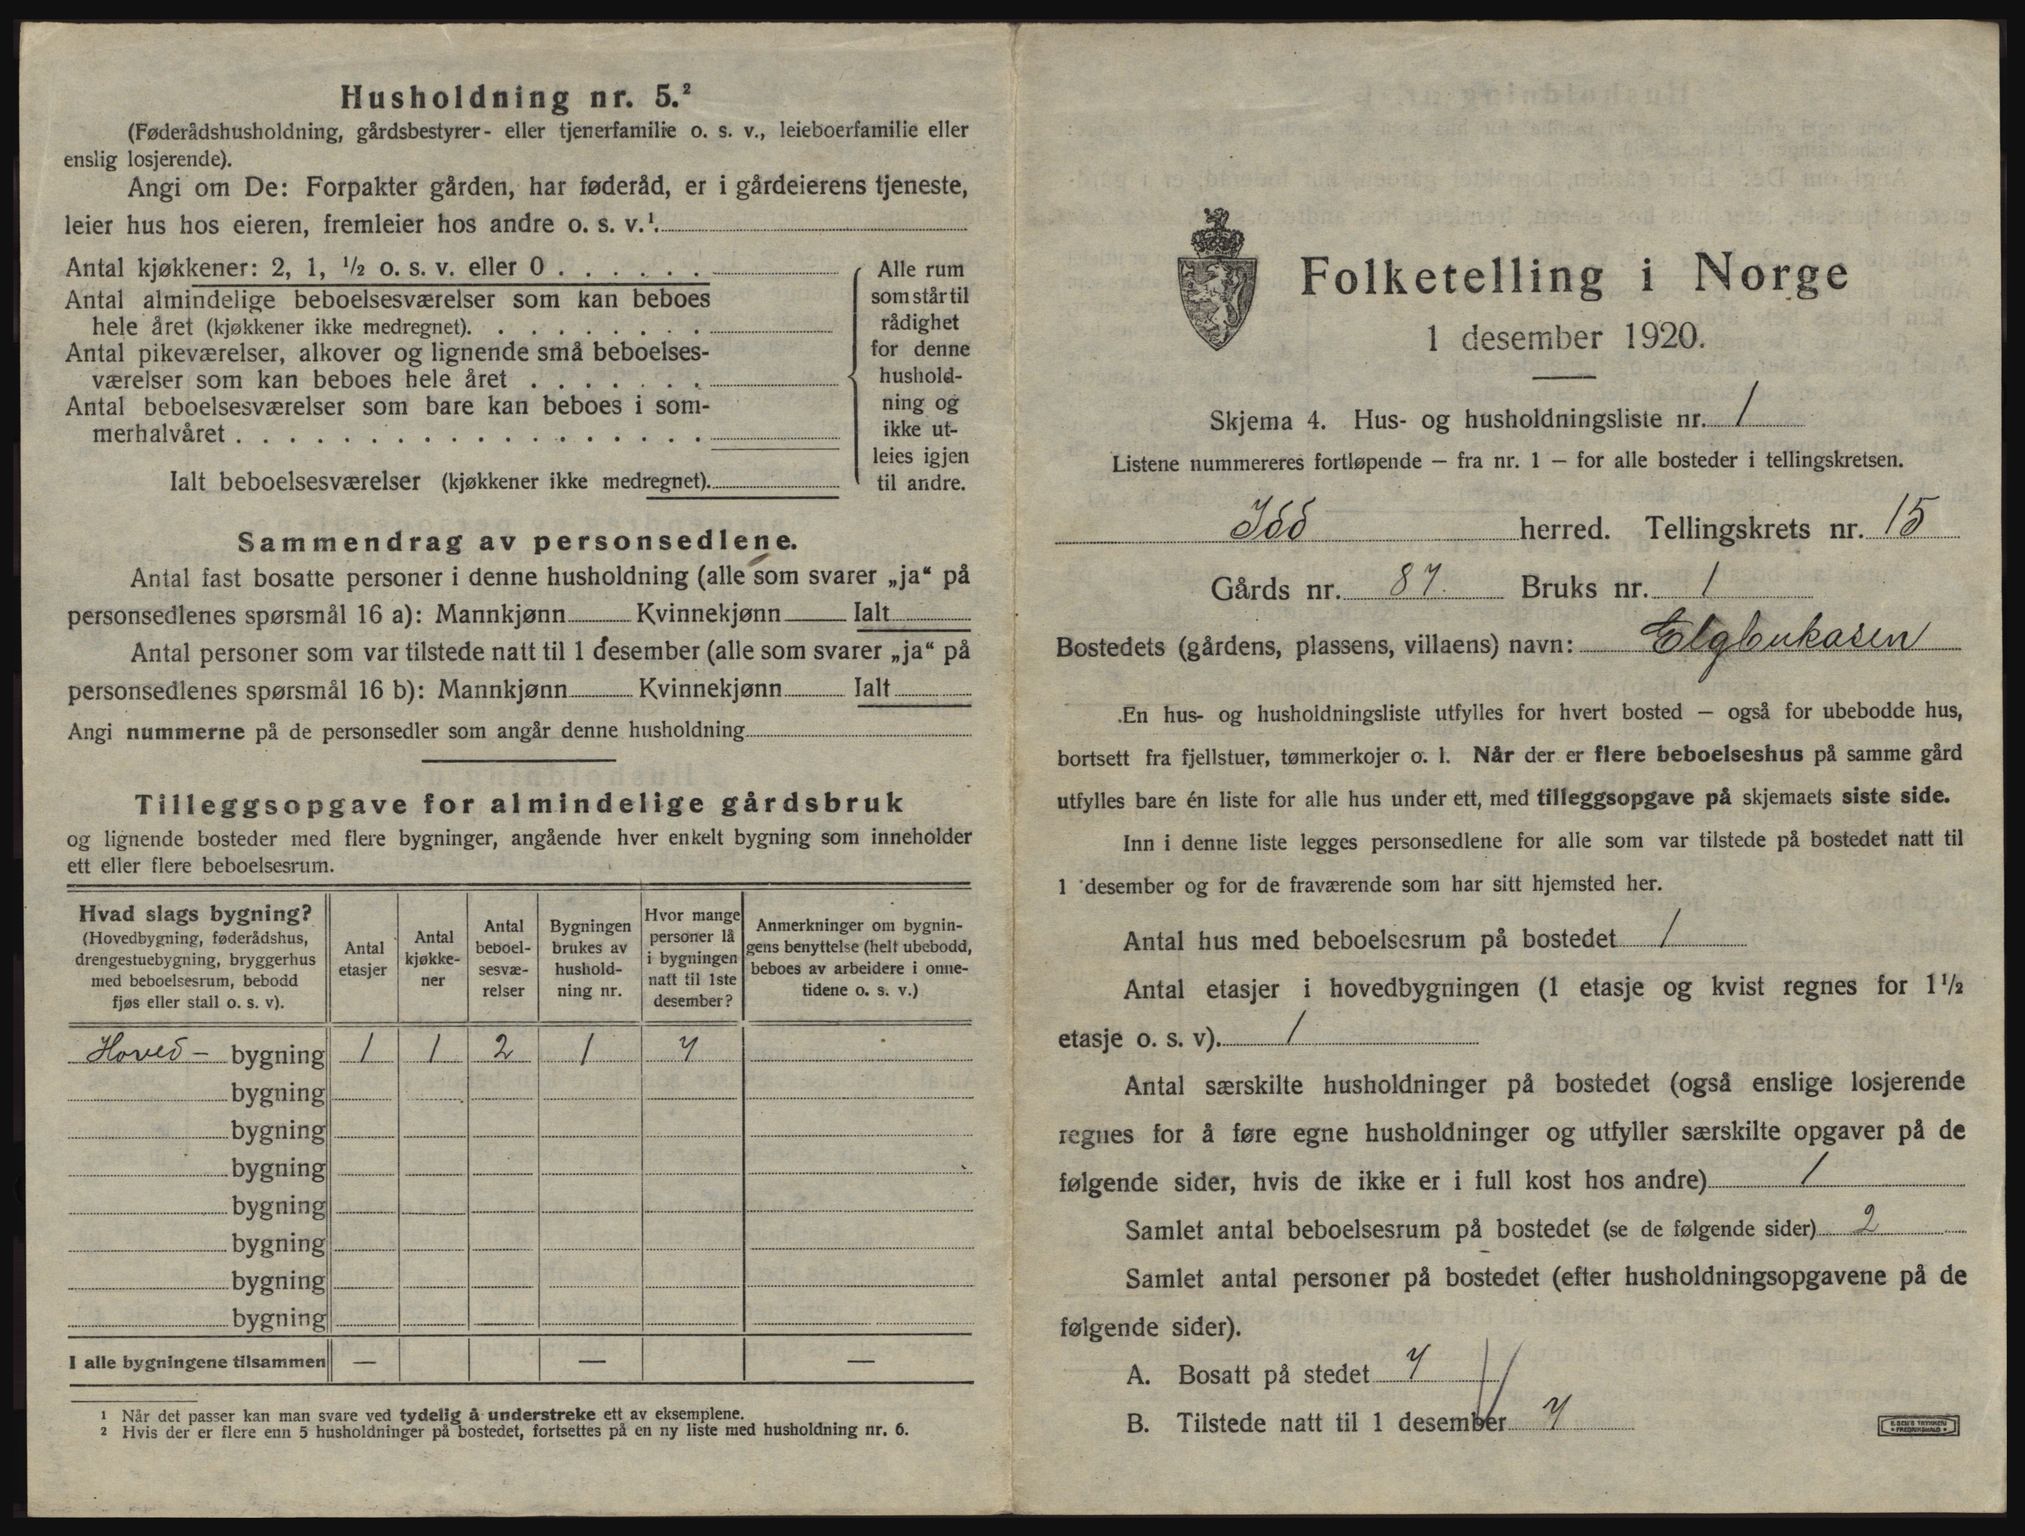 Husholdning nr. 5.²
(Føderådshusholdning, gårdsbestyrer- eller tjenerfamilie o. s. v., leieboerfamilie eller
enslig losjerende).
Angi om De: Forpakter gården, har føderåd, er i gårdeierens tjeneste,
leier hus hos eieren, fremleier hos andre o. s. v.¹.
Antal kjøkkener: 2, 1, ½ o. s. v. eller 0 . . . . . .
Antal almindelige beboelsesværelser som kan beboes
hele året (kjøkkener ikke medregnet). . . . . . . . .
Antal pikeværelser, alkover og lignende små beboelses-
værelser som kan beboes hele året . . . . . . .
Antal beboelsesværelser som bare kan beboes i som-
merhalvåret . . . . . . . . . . . . . . . . . .
Ialt beboelsesværelser (kjøkkener ikke medregnet).
Alle rum
som står til
rådighet
for denne
hushold-
ning og
ikke ut-
leies igjen
til andre.
Sammendrag av personsedlene.
Antal fast bosatte personer i denne husholdning (alle som svarer „ja“ på
personsedlenes spørsmål 16 a): Mannkjønn Kvinnekjønn Ialt
Antal personer som var tilstede natt til 1 desember (alle som svarer „ja“ på
personsedlenes spørsmål 16 b): Mannkjønn Kvinnekjønn Ialt
Angi nummerne på de personsedler som angår denne husholdning
Tilleggsopgave for almindelige gårdsbruk
og lignende bosteder med flere bygninger, angående hver enkelt bygning som inneholder
ett eller flere beboelsesrum.
Hvad slags bygning?
(Hovedbygning, føderådshus,
drengestuebygning, bryggerhus
med beboelsesrum, bebodd
fjøs eller stall o. s. v).
Antal
etasjer
Antal
kjøkke-
ner
Antal
beboel-
sesvæ-
relser
Bygningen
brukes av
hushold-
ning nr.
Hvor mange
personer lå
i bygningen
natt til 1ste
desember?
Anmerkninger om bygnin-
gens benyttelse (helt ubebodd,
beboes av arbeidere i onne-
tidene o. s. v.)
Hoved- bygning 1 1 2 1 7
bygning
bygning
bygning
bygning
bygning
bygning
bygning
I alle bygningene tilsammen — — —
1 Når det passer kan man svare ved tydelig å understreke ett av eksemplene.
2 Hvis der er flere enn 5 husholdninger på bostedet, fortsettes på en ny liste med husholdning nr. 6.
Folketelling i Norge
1 desember 1920.
Skjema 4. Hus- og husholdningsliste nr. 1
Listene nummereres fortløpende — fra nr. 1 — for alle bosteder i tellingskretsen.
Idd herred. Tellingskrets nr. 15
Gårds nr. 87. Bruks nr. 1
Bostedets (gårdens, plassens, villaens) navn: Elgbukasen
En hus- og husholdningsliste utfylles for hvert bosted — også for ubebodde hus,
bortsett fra fjellstuer, tømmerkojer o. l. Når der er flere beboelseshus på samme gård
utfylles bare én liste for alle hus under ett, med tilleggsopgave på skjemaets siste side.
Inn i denne liste legges personsedlene for alle som var tilstede på bostedet natt til
1 desember og for de fraværende som har sitt hjemsted her.
Antal hus med beboelsesrum på bostedet 1
Antal etasjer i hovedbygningen (1 etasje og kvist regnes for 1½
etasje o. s. v). 1
Antal særskilte husholdninger på bostedet (også enslige losjerende
regnes for å føre egne husholdninger og utfyller særskilte opgaver på de
følgende sider, hvis de ikke er i full kost hos andre) 1
Samlet antal beboelsesrum på bostedet (se de følgende sider) 2
Samlet antal personer på bostedet (efter husholdningsopgavene på de
følgende sider).
A. Bosatt på stedet 7
B. Tilstede natt til 1 desember 7